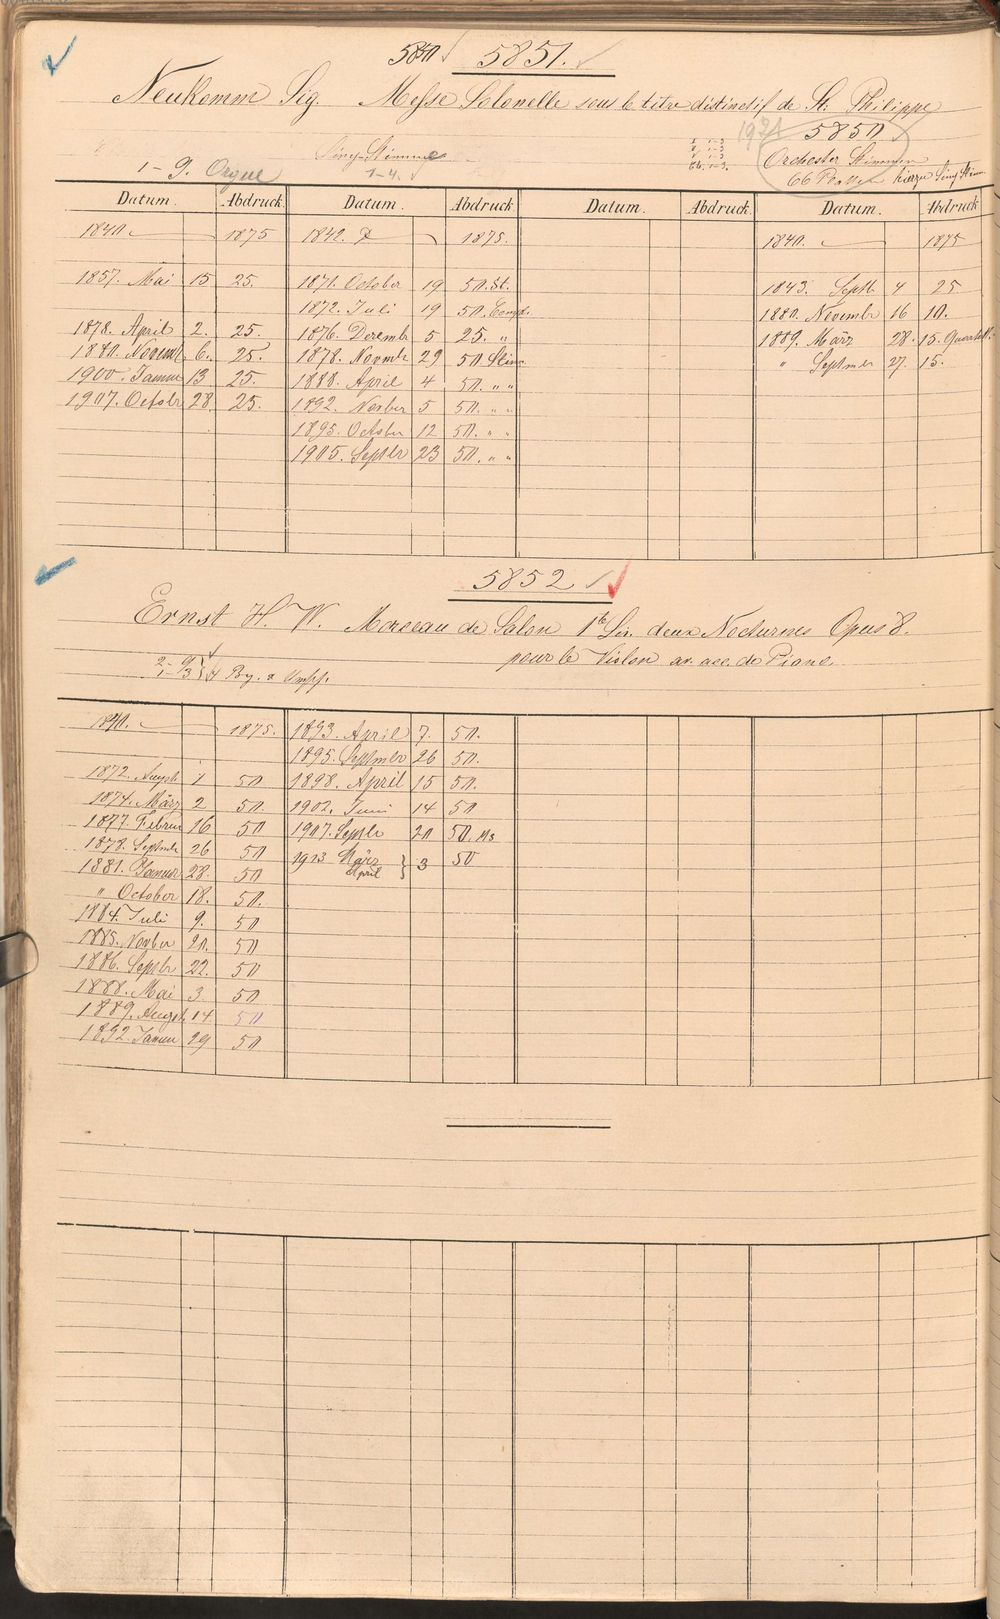 5850 5851.
Neukomm Sig. Messe Solonelle sous le titre distinctif de St. Philippe
5850
Sing-Stimme Orchester Stimmen
1-9. Orgue 1-4. 66 Platten hierzu Sing Stim.
Datum. Abdruck. Datum. Abdruck Datum. Abdruck. Datum. Abdruck
1840. 1875 1842. 1875. 1840. 1875
1857. Mai 15 25. 1871. October 19 50. St. 1843. Septb. 4 25
1872. Juli 19 50. 1880. Novembr 16 10.
1878. April 2. 25. 1876. Decembr 5 25. " 1889. März 28. 15.
1880. Novemb. 6. 25. 1878. Novmbr 29 50 " Septmbr 27. 15.
1900. Januar 13 25. 1888. April 4 50. " "
1907. Octobr 28 25. 1892. Novber 5 50. " "
1895. October 12 50. " "
1905. Septbr 23 50. " "
5852
Ernst H. W. Morceau de Salon 1te Liv. deux Nocturnes Opus 8.
pour le Violon av. acc. de Piano.
2-9
1-3
1840. 1875. 1893. April 7. 50.
1895. Septmber 26 50.
1872. August 1 50 1898. April 15 50.
1874. März 2 50. 1902. Juni 14 50
1877. Februr 16 50 1907. Septbr 20 50.
1878. Septmbr 26 50 1913 März 3 50
1881. Januar 28. 50 April
" October 18. 50.
1884. Juli 9. 50
1885. Novber 20. 50
1886. Septbr 22. 50
1888. Mai 3. 50
1889. August. 14. 50
1892. Januar 29 50